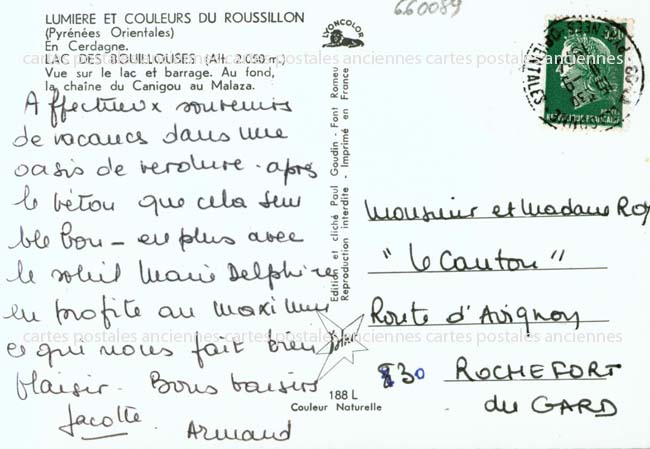 LUMIERE ET COULEURS DU ROUSSILLON
(Pyrénées Orientales)
En Cerdagne.
LAC DES BOUILLOUSES (Alt. 2.050 m.)
Vue sur le lac et barrage. Au fond,
la chaîne du Canigou au Malaza.
Affectueux souvenirs
de vacances dans une
oasis de verdure - après
le béton que cela sem
ble bon - en plus avec
le soleil Marie Delphine
en profite au maximum
ce qui nous fait bien
plaisir. Bons baisers
Jacotte
Armand
LYONCOLOR
Edition et cliché Paul Gaudin - Font Romeu
Reproduction interdite - Imprimé en France
188 L
Couleur Naturelle
660089
REPUBLIQUE FRANÇAISE
Monsieur et Madame Roy
"le Canton"
Route d'Avignon
30 ROCHEFORT
du GARD
cartes postales anciennes cartes postales anciennes cartes postales anciennes
cartes postales anciennes cartes postales anciennes cartes postales anciennes